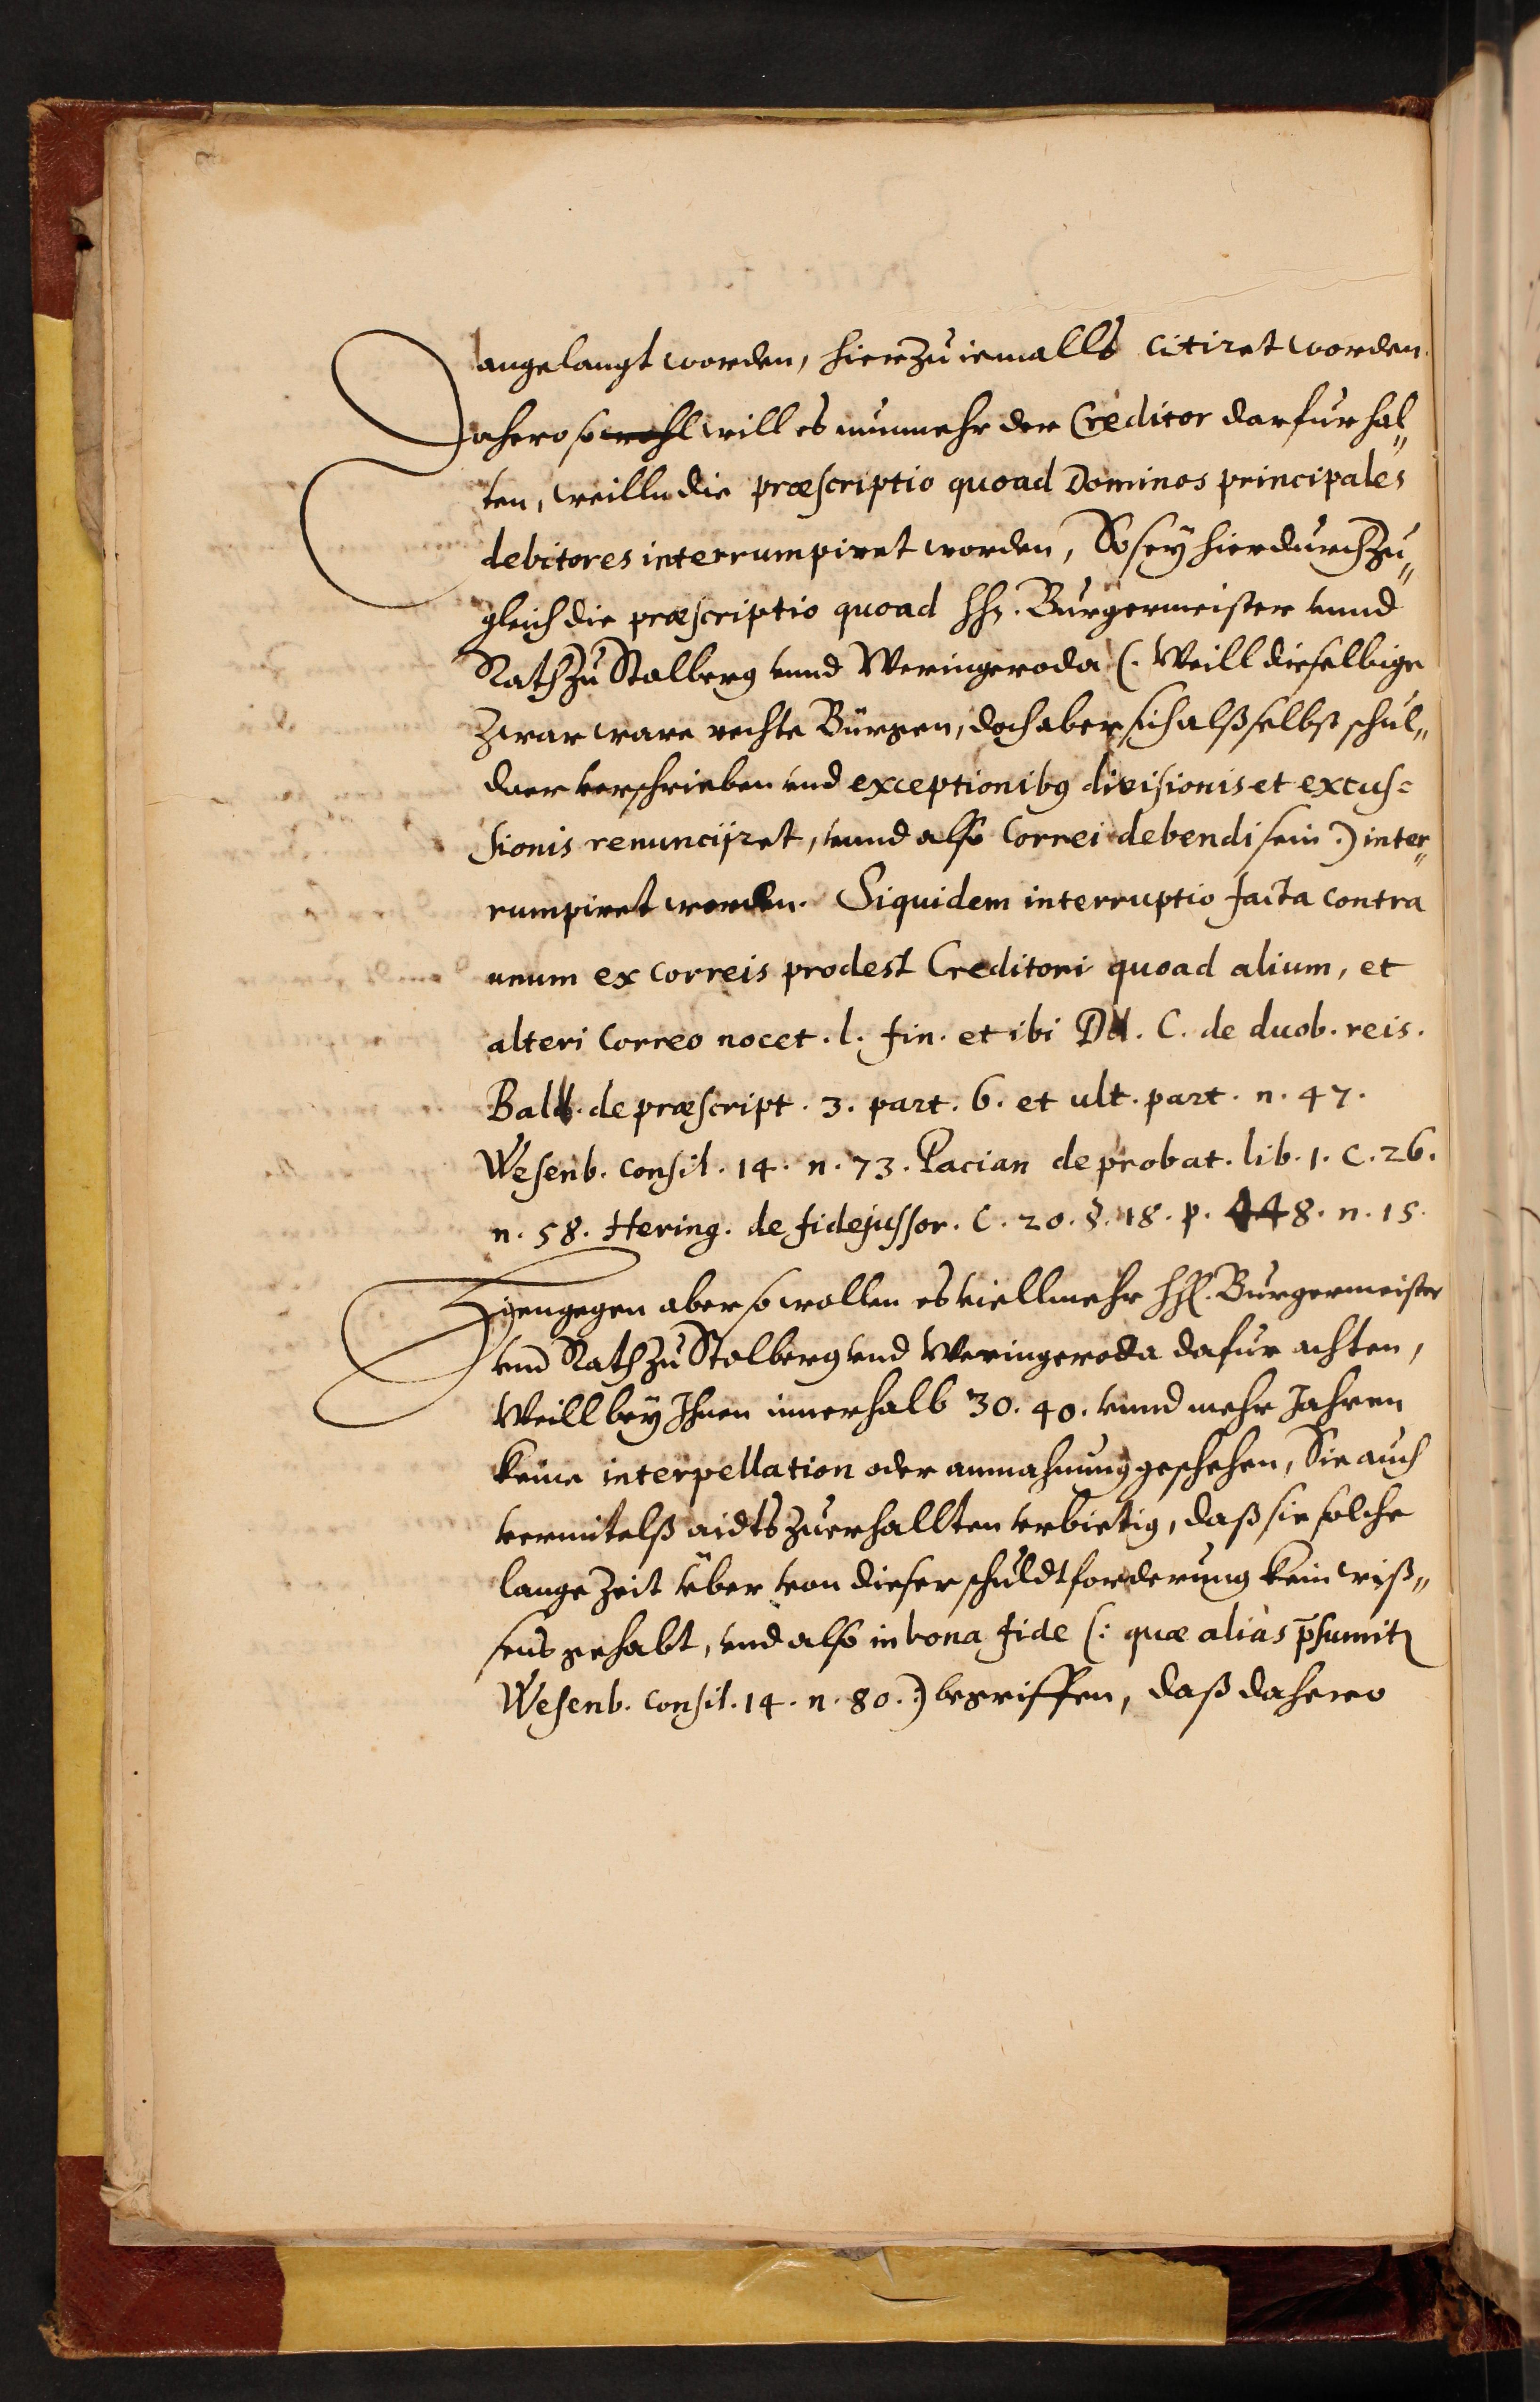 angelangt worden, hierzu iemalls citiret worden.
Dahero so wohl will es nunmehr der Creditor darfur hal„
ten, weilln die præscriptio quoad Dominos principales
debitores interrumpiret worden, So sey hierdurch zu„
gleich die præscriptio quoad HHn. Burgermeister unnd
Rath zu Stolberg unnd Weringeroda (: Weill dieselbige
zwar ware rechte Bürgen, doch aber sich alß selbst schul„
dner verschrieben und exceptionibus divisionis et excus=
sionis renuncijret, unnd also Correi debendi sein :) inter„
rumpiret worden. Siquidem interruptio facta contra
unum ex correis prodest Creditori quoad alium, et
alteri Correo nocet. l. fin. et ibi Dd. C. de duob. reis.
Balb. de præscript. 3. part. 6. et ult. part. n. 47.
Wesenb. consil. 14. n. 73. Pacian de probat. lib. 1. c. 26.
n. 58. Hering. de fidejussor. C. 20. §. 18. p. 448. n. 15.
Hiengegen aber so wollen es viellmehr HH. Burgermeister
und Rath zu Stolberg und Weringeroda dafur achten,
Weill bey Ihnen innerhalb 30. 40. unnd mehr Jahren
keine interpellation oder anmahnung geschehen, Sie auch
vermitelß aidts zuerhallten erbietig, daß sie solche
lange Zeit über von dieser schuldtforderung kein wiß„
sens gehabt, und also in bona fide (: quæ alias p̄sumitur
Wesenb. consil. 14. n. 80. :) begriffen, daß dahero